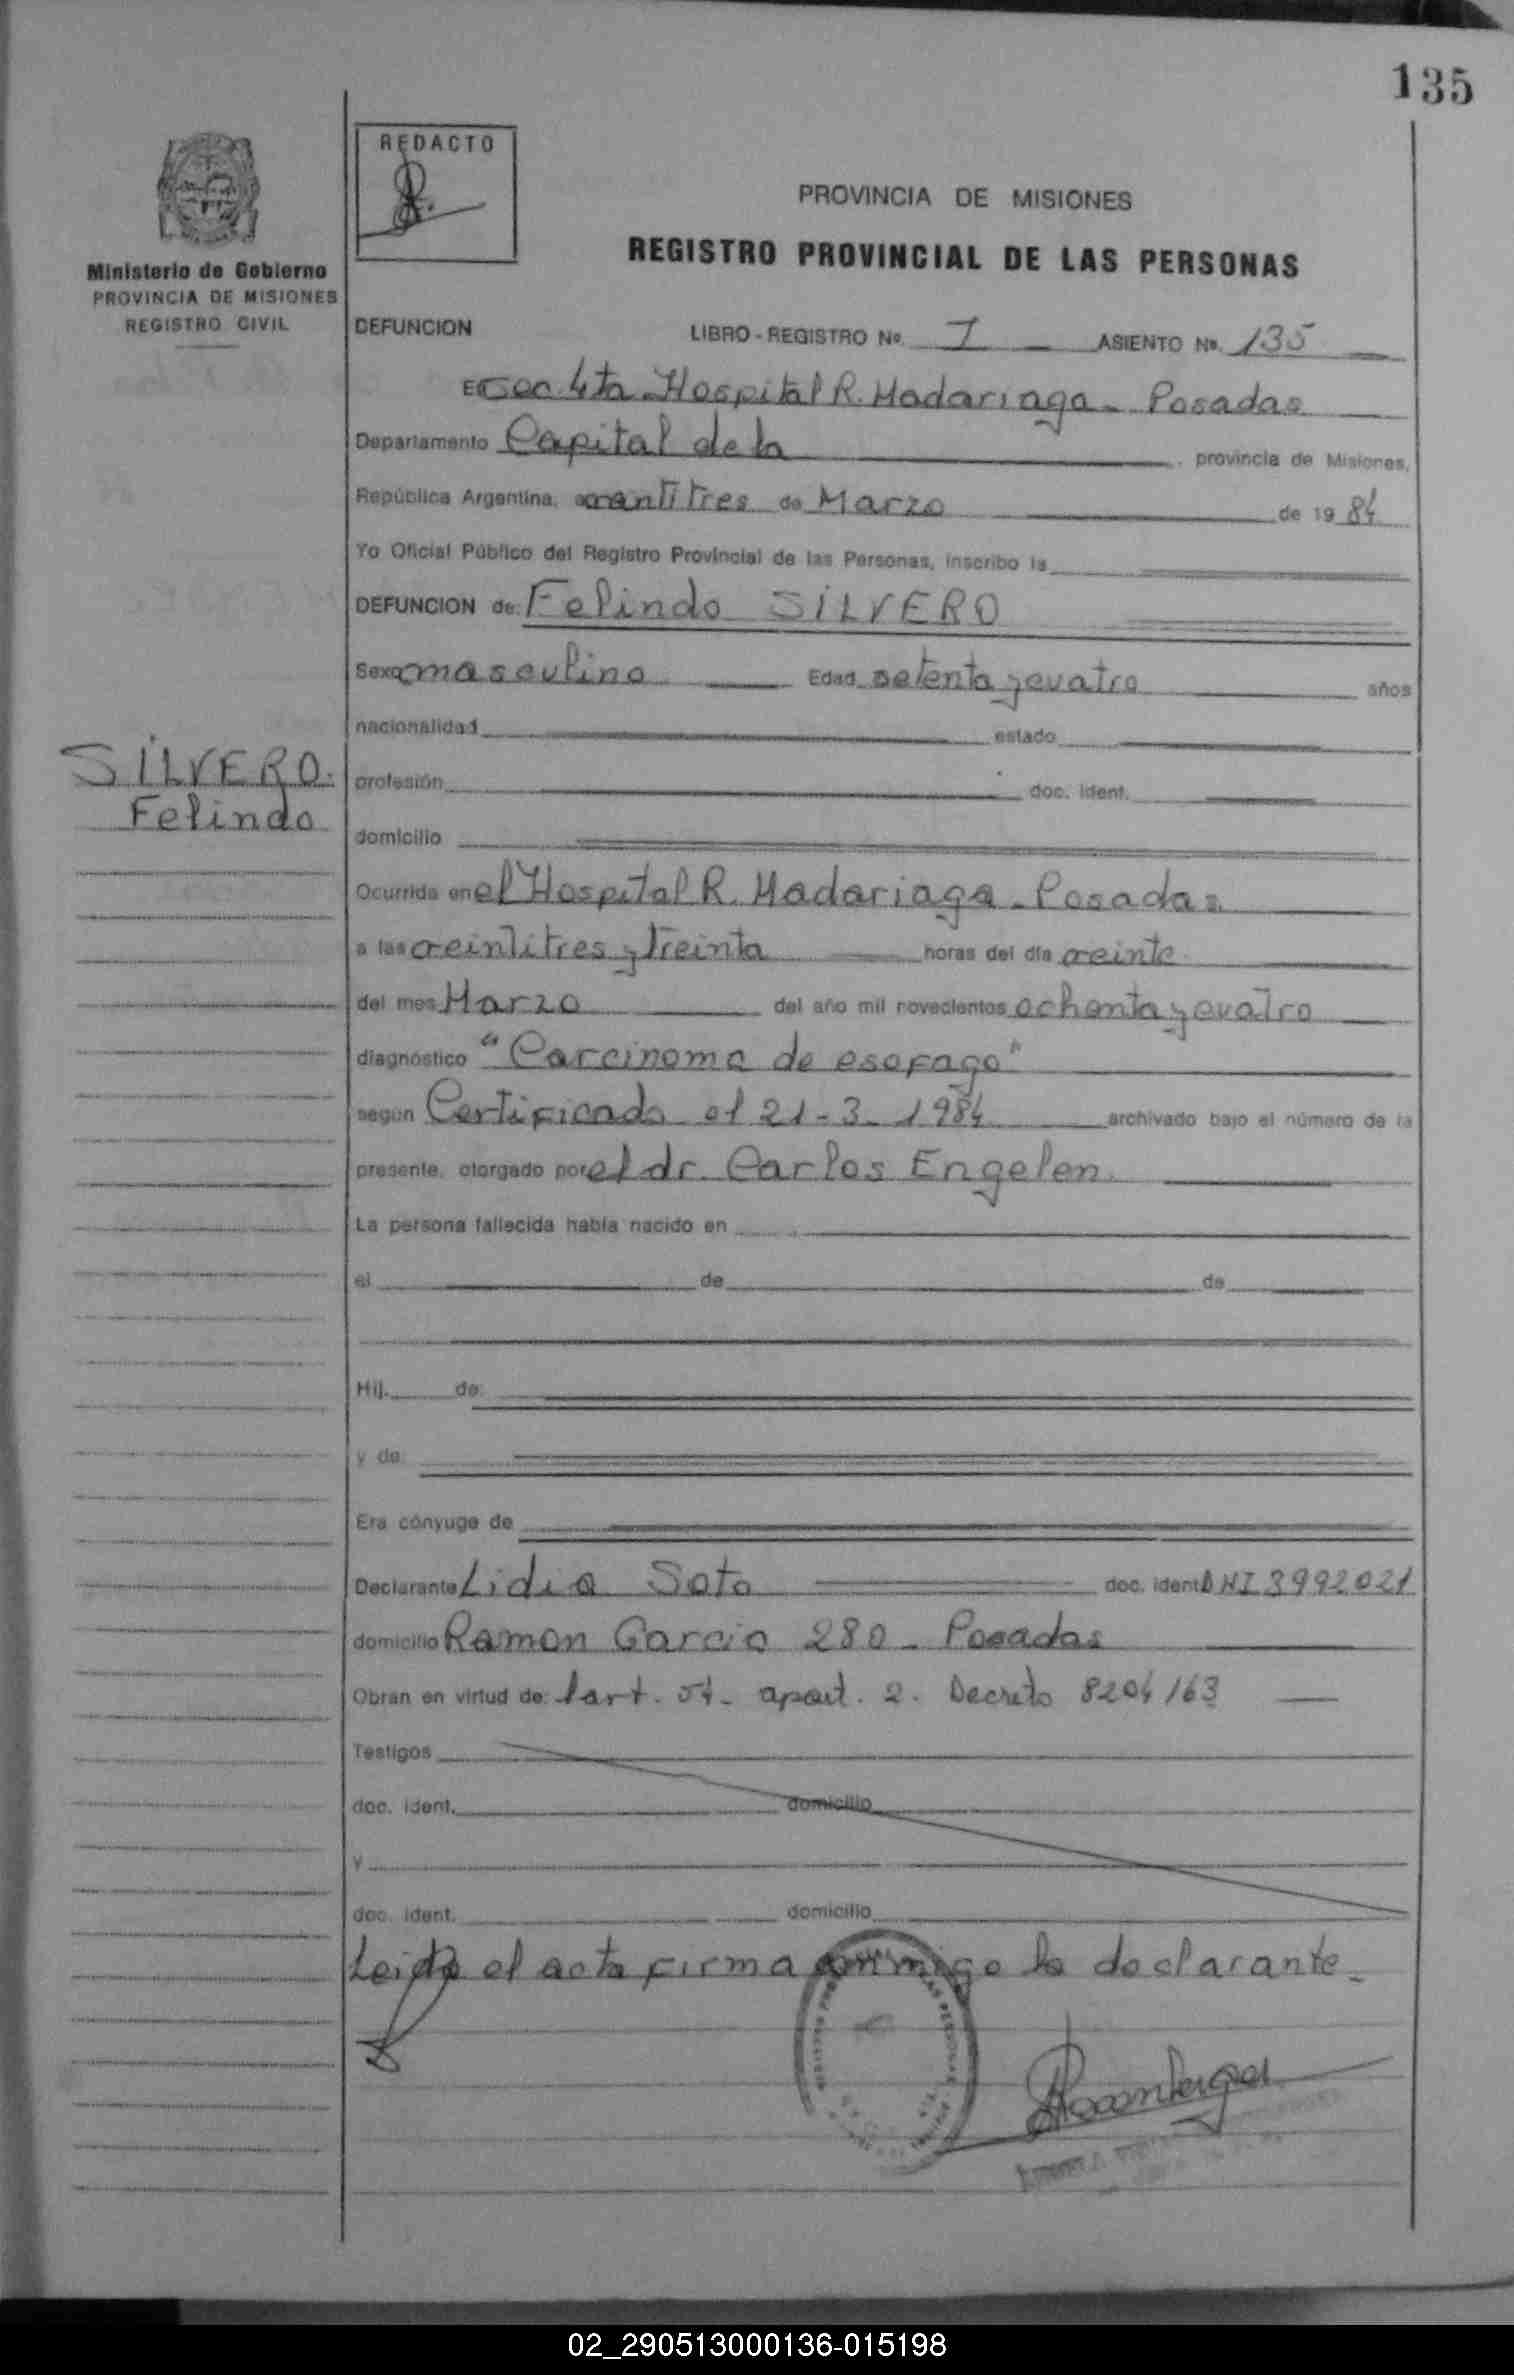 135
REDACTO
PROVINCIA DE MISIONES
REGISTRO PROVINCIAL DE LAS PERSONAS
Ministerio de Gobierno
PROVINCIA DE MISIONES
REGISTRO CIVIL
DEFUNCION LIBRO - REGISTRO Nº. I ASIENTO Nº. 135
En Sec. 4ta Hospital R. Madariaga - Posadas
Departamento Capital de la , provincia de Misiones,
República Argentina, a veintitres de Marzo de 1984
Yo Oficial Público del Registro Provincial de las Personas, inscribo la
DEFUNCION de: Felindo SILVERO
Sexo masculino Edad setenta y cuatro años
nacionalidad estado
SILVERO.
Felindo
profesión doc. ident.
domicilio
Ocurrida en el Hospital R. Madariaga - Posadas
a las veintitres y treinta horas del día veinte
del mes Marzo del año mil novecientos ochenta y cuatro
diagnóstico "Carcinoma de esofago"
según Certificado el 21-3-1984 archivado bajo el número de la
presente, otorgado por el dr. Carlos Engelen.
La persona fallecida había nacido en
el de de
Hij. de:
y de:
Era cónyuge de
Declarante Lidia Soto doc. ident. DNI 3992021
domicilio Ramon Garcia 280 - Posadas
Obran en virtud de: art. 54 - apart. 2. Decreto 8204/63
Testigos
doc. ident. domicilio
y
doc. ident. domicilio
Leida el acta firma conmigo la declarante -
02_290513000136-015198